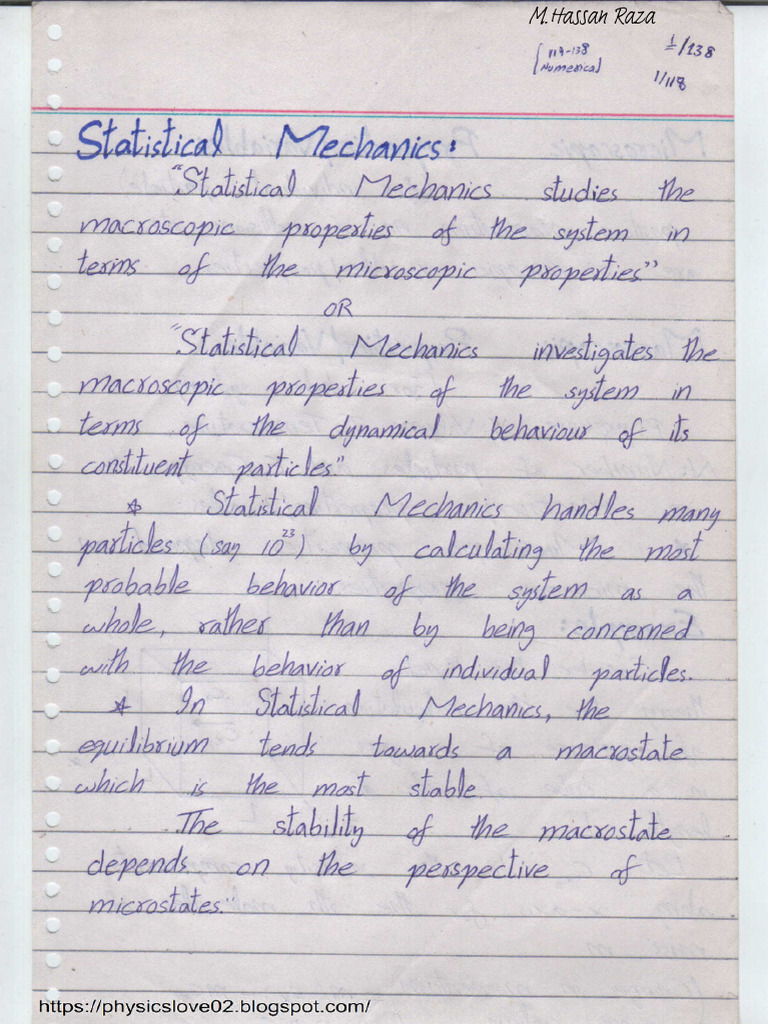 M.Hassan Raza
1/138
[119-138
Numerical]
1/118
Statistical Mechanics:
"Statistical Mechanics studies the
macroscopic properties of the system in
terms of the microscopic properties."
OR
"Statistical Mechanics investigates the
macroscopic properties of the system in
terms of the dynamical behaviour of its
constituent particles."
* Statistical Mechanics handles many
particles (say 10²³) by calculating the most
probable behavior of the system as a
whole, rather than by being concerned
with the behavior of individual particles.
* In Statistical Mechanics, the
equilibrium tends towards a macrostate
which is the most stable.
The stability of the macrostate
depends on the perspective of
microstates."
https://physicslove02.blogspot.com/